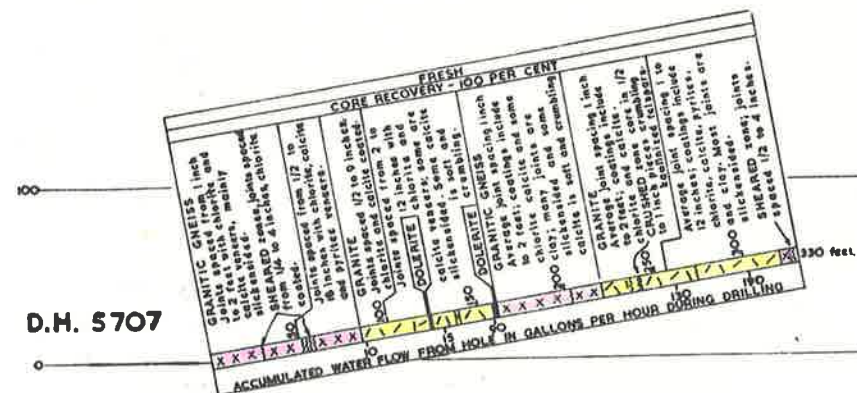 FRESH
CORE RECOVERY - 100 PER CENT
GRANITIC GNEISS
Joints spaced from 1 inch
to 2 feet with chlorite and
calcite veneers, mainly
slickensided.
SHEARED zones, joints spaced
from 1/4 to 4 inches, chlorite
coated.
Joints spaced from 1/2 to
16 inches with chlorite, calcite
and pyrites veneers.
GRANITE
Joints spaced 1/2 to 9 inches.
chlorite and calcite coated.
Joints spaced from 2 to
12 inches with
DOLERITE chlorite and
calcite veneers; some are
slickensided. Some calcite
is soft and
crumbling.
DOLERITE
GRANITIC GNEISS
Average joint spacing 1 inch
to 2 feet; coatings include
chlorite, calcite and some
clay; many joints are
slickensided and some
calcite is soft and crumbling
GRANITE
Average joint spacing 1 inch
to 2 feet; coatings include
chlorite and calcite.
CRUSHED zone core in 1/2
to 1 inch pieces crumbling
Average joint spacing 1 to
12 inches; coatings include
chlorite, calcite, pyrites,
and clay. Most joints are
slickensided.
SHEARED zone; joints
spaced 1/2 to 4 inches.
50
100
150
200
250
300
330 feet
10
15
60
130
190
ACCUMULATED WATER FLOW FROM HOLE IN GALLONS PER HOUR DURING DRILLING
100
D.H. 5707
0